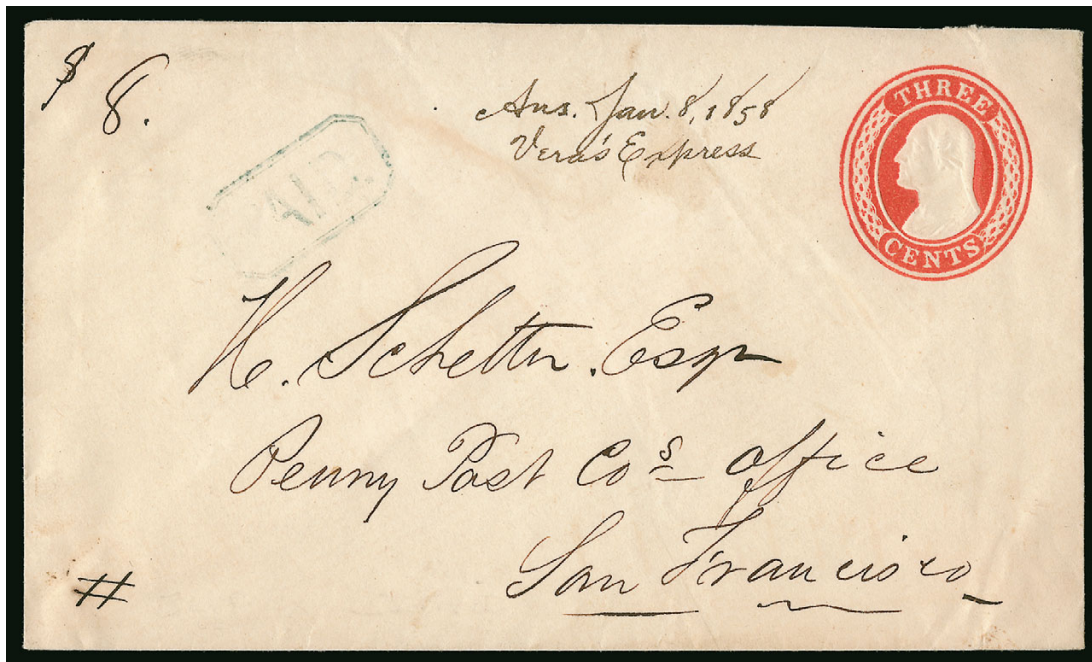 $ 8.
Ans. Jan. 8, 1858
Vera's Express
THREE
CENTS
PAID
H. Schetter. Esqr
Penny Post Cos office
San Francisco
#